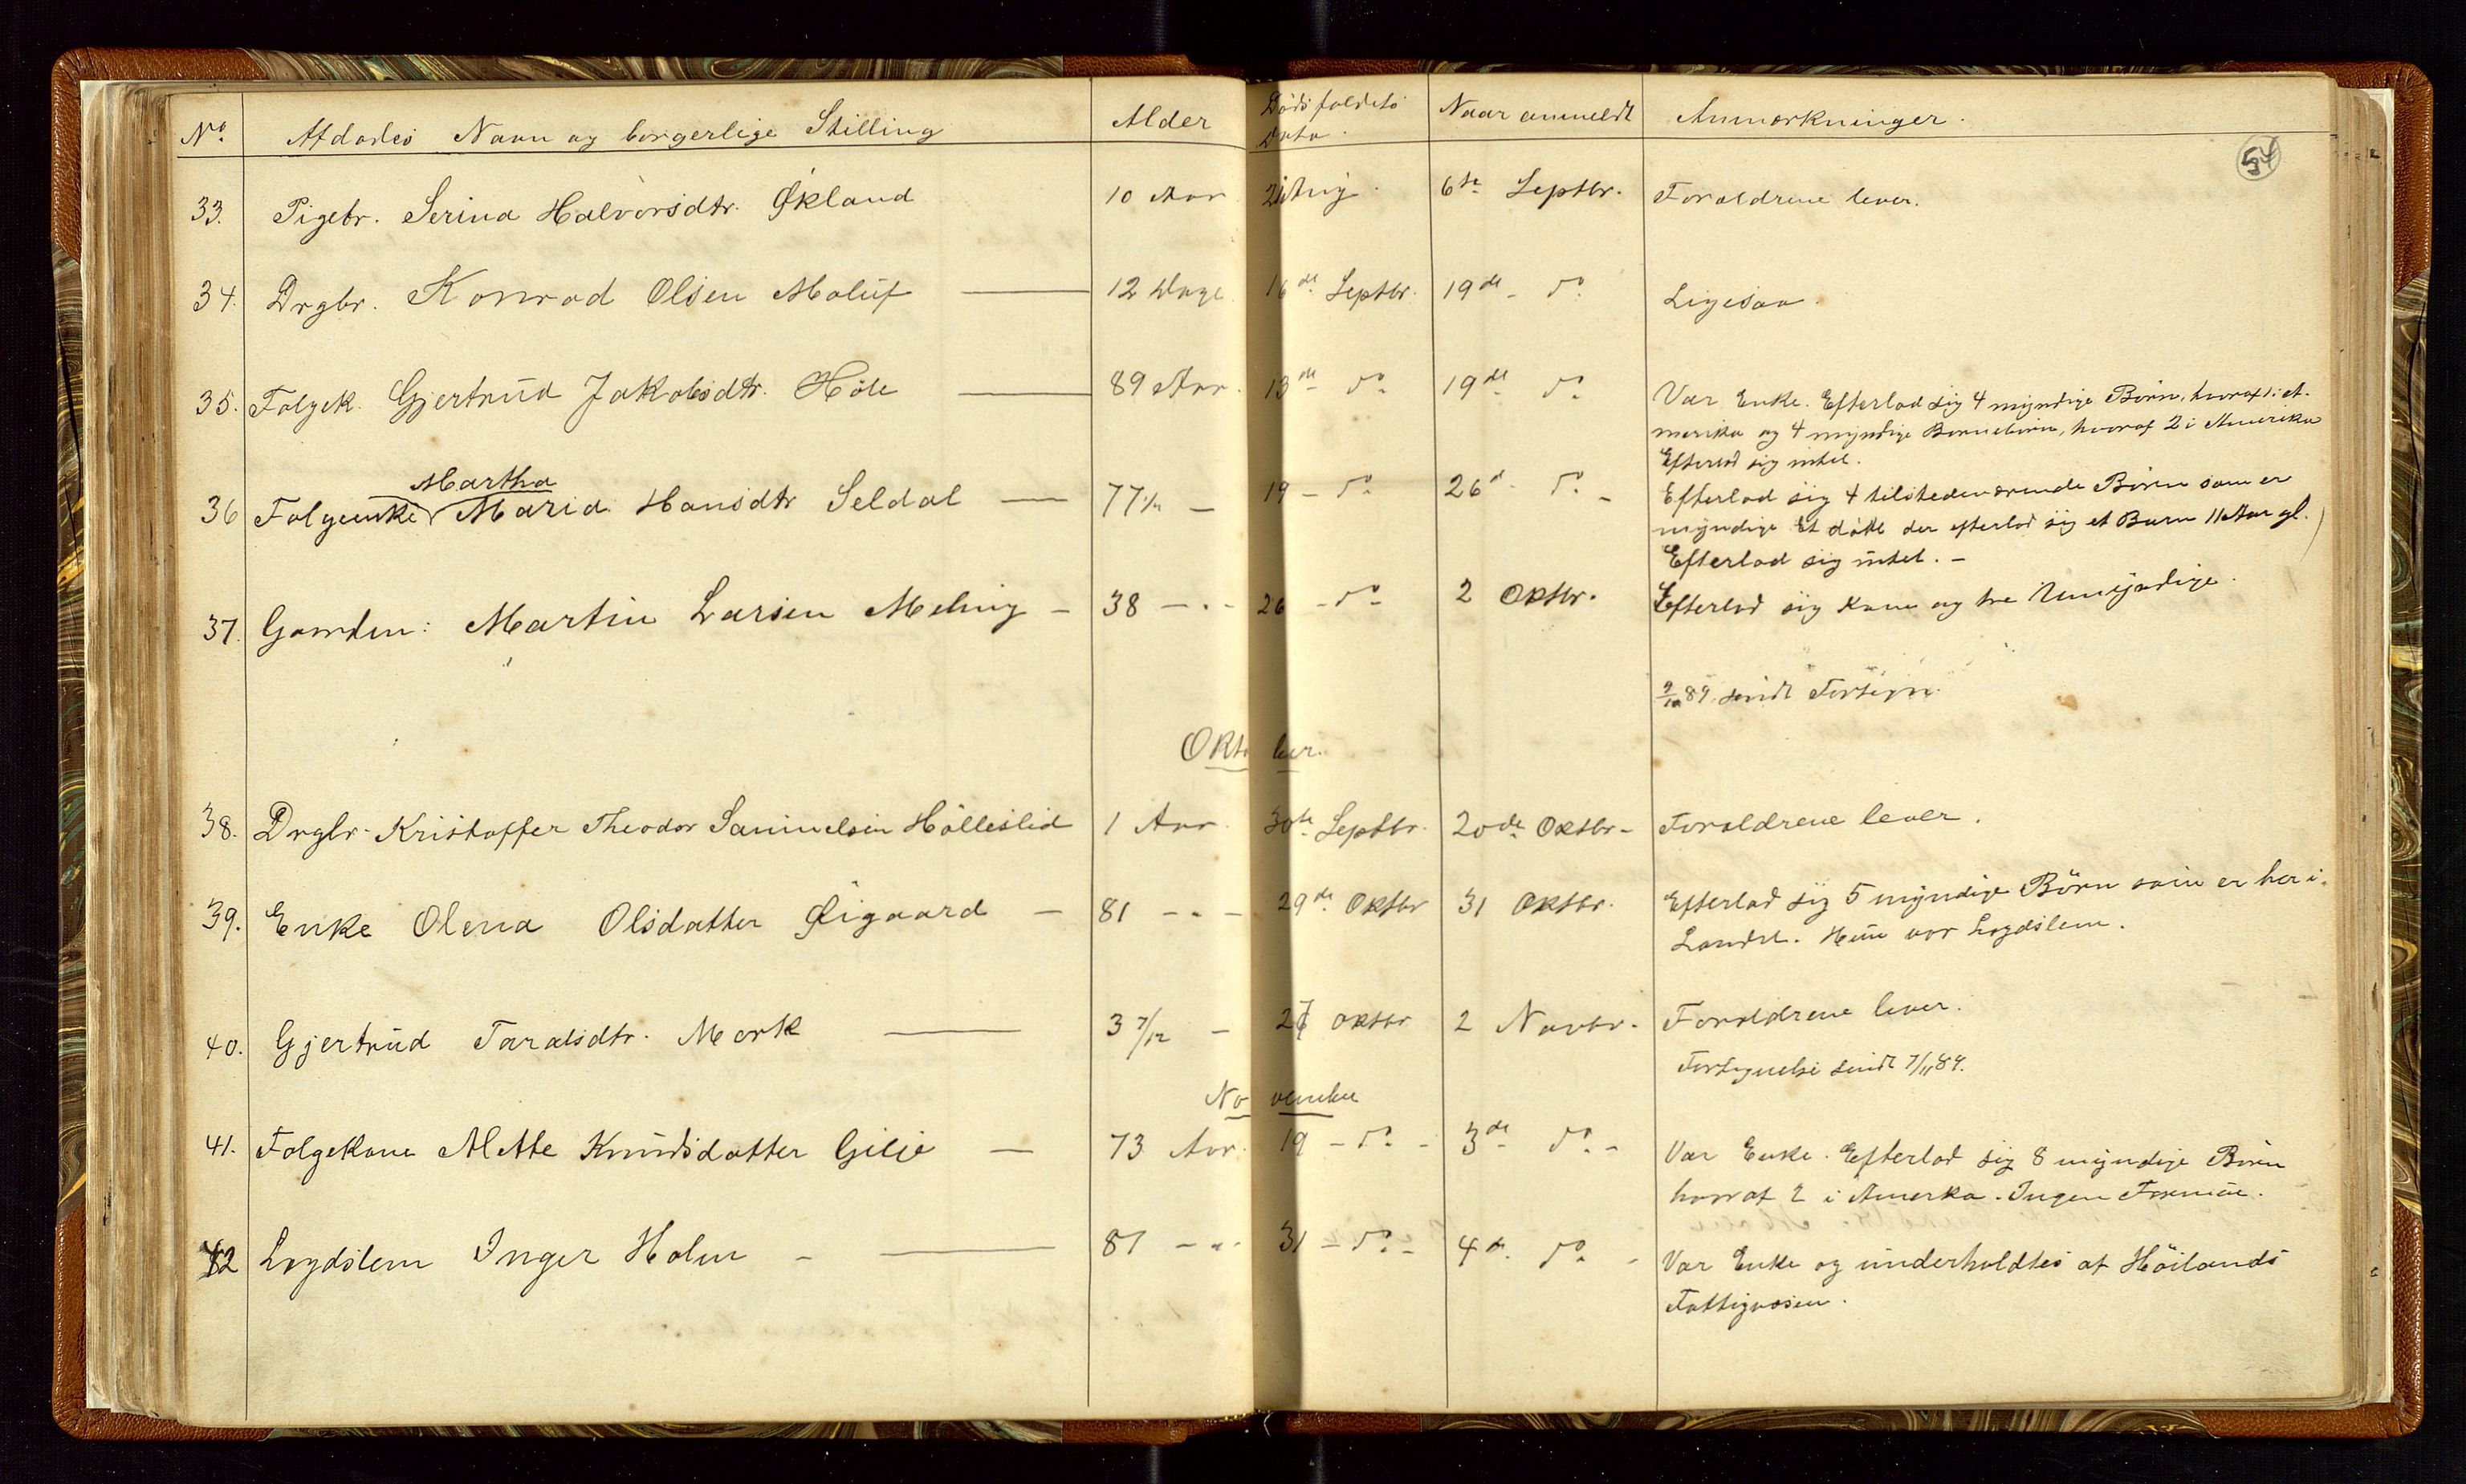 No. Afdødes Navn og borgerlige Stilling Alder Dødsfaldets Dato. Naar anmeldt Anmærkninger.
54
33. Pigebr. Serina Halvorsdtr. Økland 10 Aar 21 Aug. 6te Septbr. Forældrene lever.
34. Drgbr. Konrad Olsen Maluf — 12 Dage 16de Septbr. 19de - do Ligesaa.
35. Følgek. Gjertrud Jakobsdtr. Høle — 89 Aar. 13de do 19de do Var Enke. Efterlod sig 4 myndige Børn, hvoraf 1 i A-
merika og 4 myndige Børnebørn, hvoraf 2 i Amerika
Efterlod sig intet.
Martha
36 Følgeenke Maria Hansdtr Seldal — 77 1/2 — 19 - do 26de - do - Efterlod sig 4 tilstedeværende Børn som er
myndige Et døde der efterlod sig et Barn 11 Aar gl.
Efterlod sig intet. -
37. Gaardm: Martin Larsen Meling - 38 - " - 26 - do - 2 Oktbr. Efterlod sig Kone og tre Umyndige.
9/10 89. sendt Fortegn.
Oktober.
38. Drgbr. Kristoffer Theodor Samuelsen Hølleslid 1 Aar. 30te Septbr. 20de Oktbr- Forældrene lever.
39. Enke Olena Olsdatter Øigaard - 81 - " - 29de Oktbr 31 Oktbr. Efterlod sig 5 myndige Børn som er her i
Landet. Hun var Lægdslem.
40. Gjertrud Taralsdtr. Mork — 3 7/12 - 27 Oktbr 2 Novbr. Forældrene lever.
Fortegnelse sendt 7/11 89.
November
41. Følgekone Mette Knudsdatter Gilje — 73 Aar. 19 - do - 3de do - Var Enke. Efterlod sig 8 myndige Børn
hvoraf 2 i Amerka. Ingen Formue.
42 Lægdslem Inger Holm - — 87 - " - 31 - do - 4de do - Var Enke og underholdtes af Høilands
Fattigvæsen.